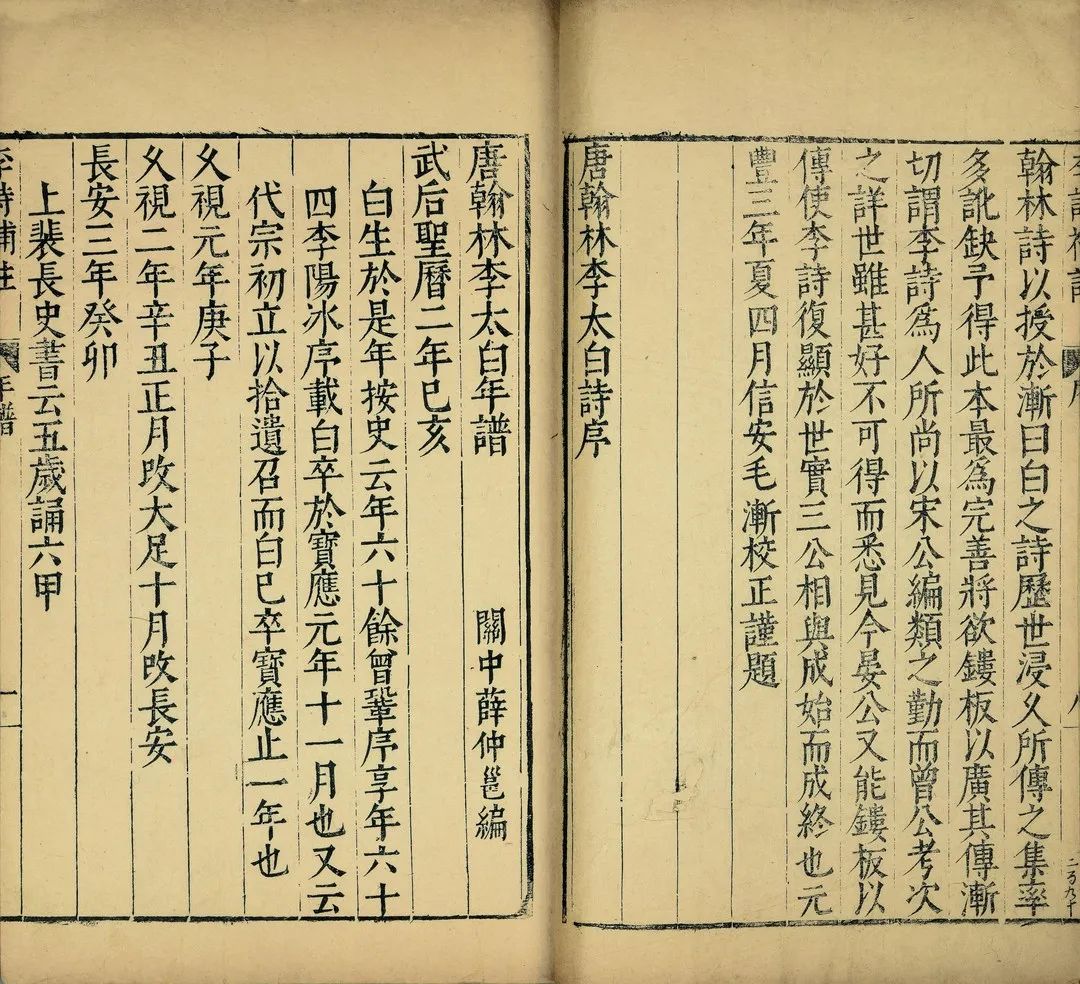 翰林詩以授於漸曰白之詩歷世浸乆所傳之集率
多訛缺予得此本最為完善將欲鏤板以廣其傳漸
切謂李詩為人所尚以宋公編類之勤而曾公考次
之詳世雖甚好不可得而悉見今晏公又能鏤板以
傳使李詩復顯於世實三公相與成始而成終也元
豐三年夏四月信安毛漸校正謹題
唐翰林李太白詩序
唐翰林李太白年譜
關中薛仲邕編
武后聖曆二年巳亥
白生於是年按史云年六十餘曾鞏序享年六十
四李陽冰序載白卒於寶應元年十一月也又云
代宗初立以拾遺召而白巳卒寶應止一年也
乆視元年庚子
乆視二年辛丑正月改大足十月改長安
長安三年癸卯
上裴長史書云五歲誦六甲
李詩補註
年譜
一